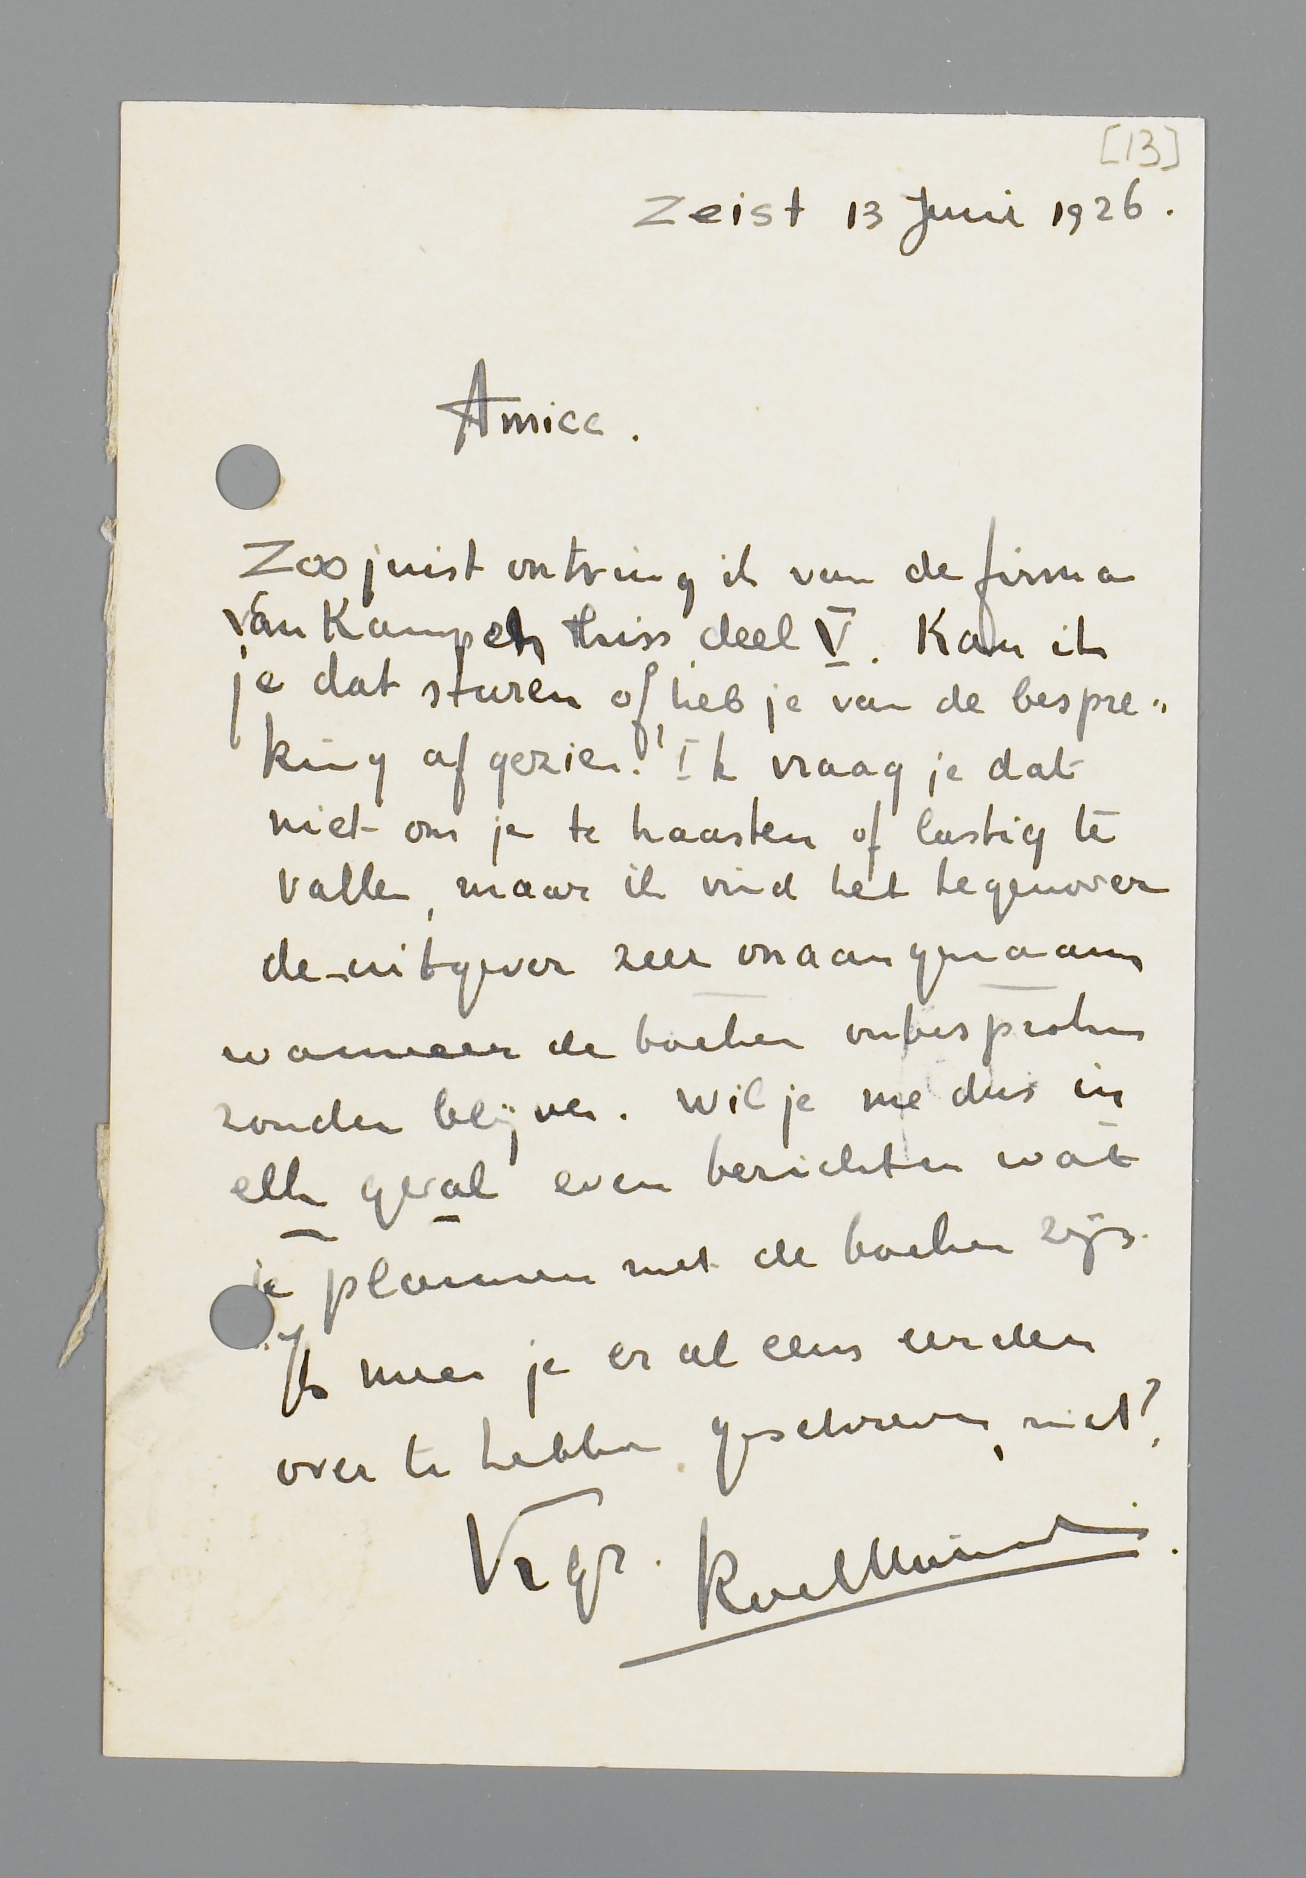 [13]
Zeist 13 Juni 1926.
Amice.
Zoo juist ontving ik van de firma
van Kampen thiss deel V. Kan ik
je dat sturen of heb je van de bespre-
king afgezien? Ik vraag je dat
niet om je te haasten of lastig te
vallen, maar ik vind het tegenover
de uitgever zeer onaangenaam
wanneer de boeken onbesproken
zouden blijven. Wil je me dus in
elk geval even berichten wat
je plannen met de boeken zijn.
Ik meen je er al eens eerder
over te hebben geschreven, niet?
Vr gr. Roel Houwink.